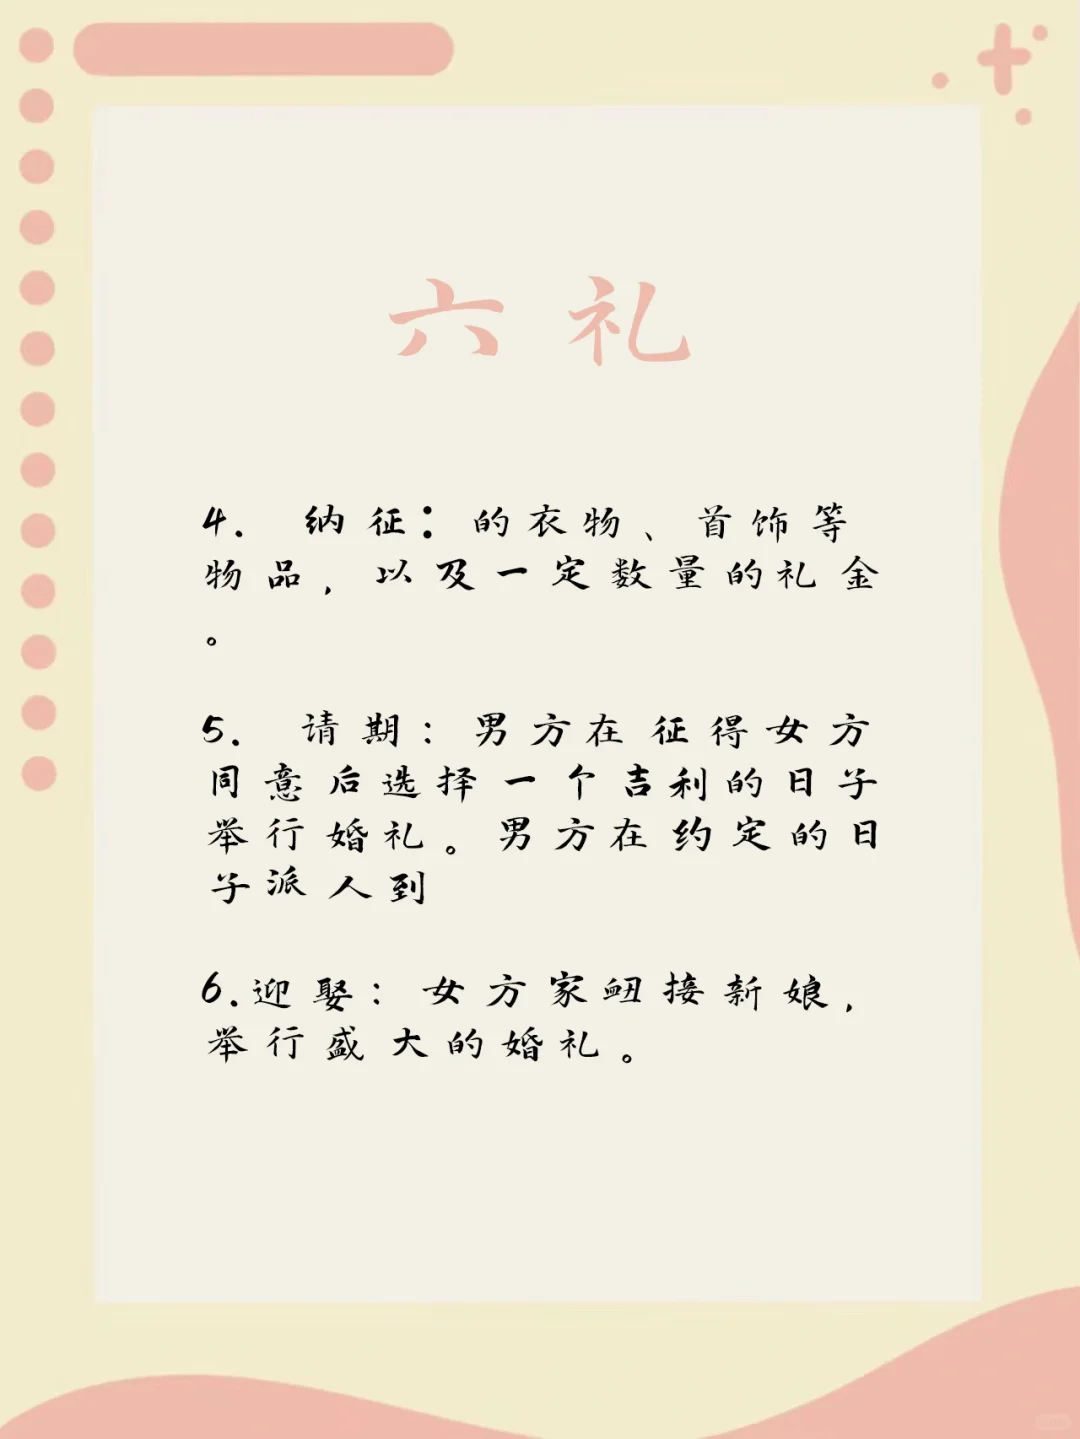 六礼
4. 纳征：的衣物、首饰等
物品，以及一定数量的礼金
。
5. 请期：男方在征得女方
同意后选择一个吉利的日子
举行婚礼。男方在约定的日
子派人到
6.迎娶：女方家衄接新娘，
举行盛大的婚礼。